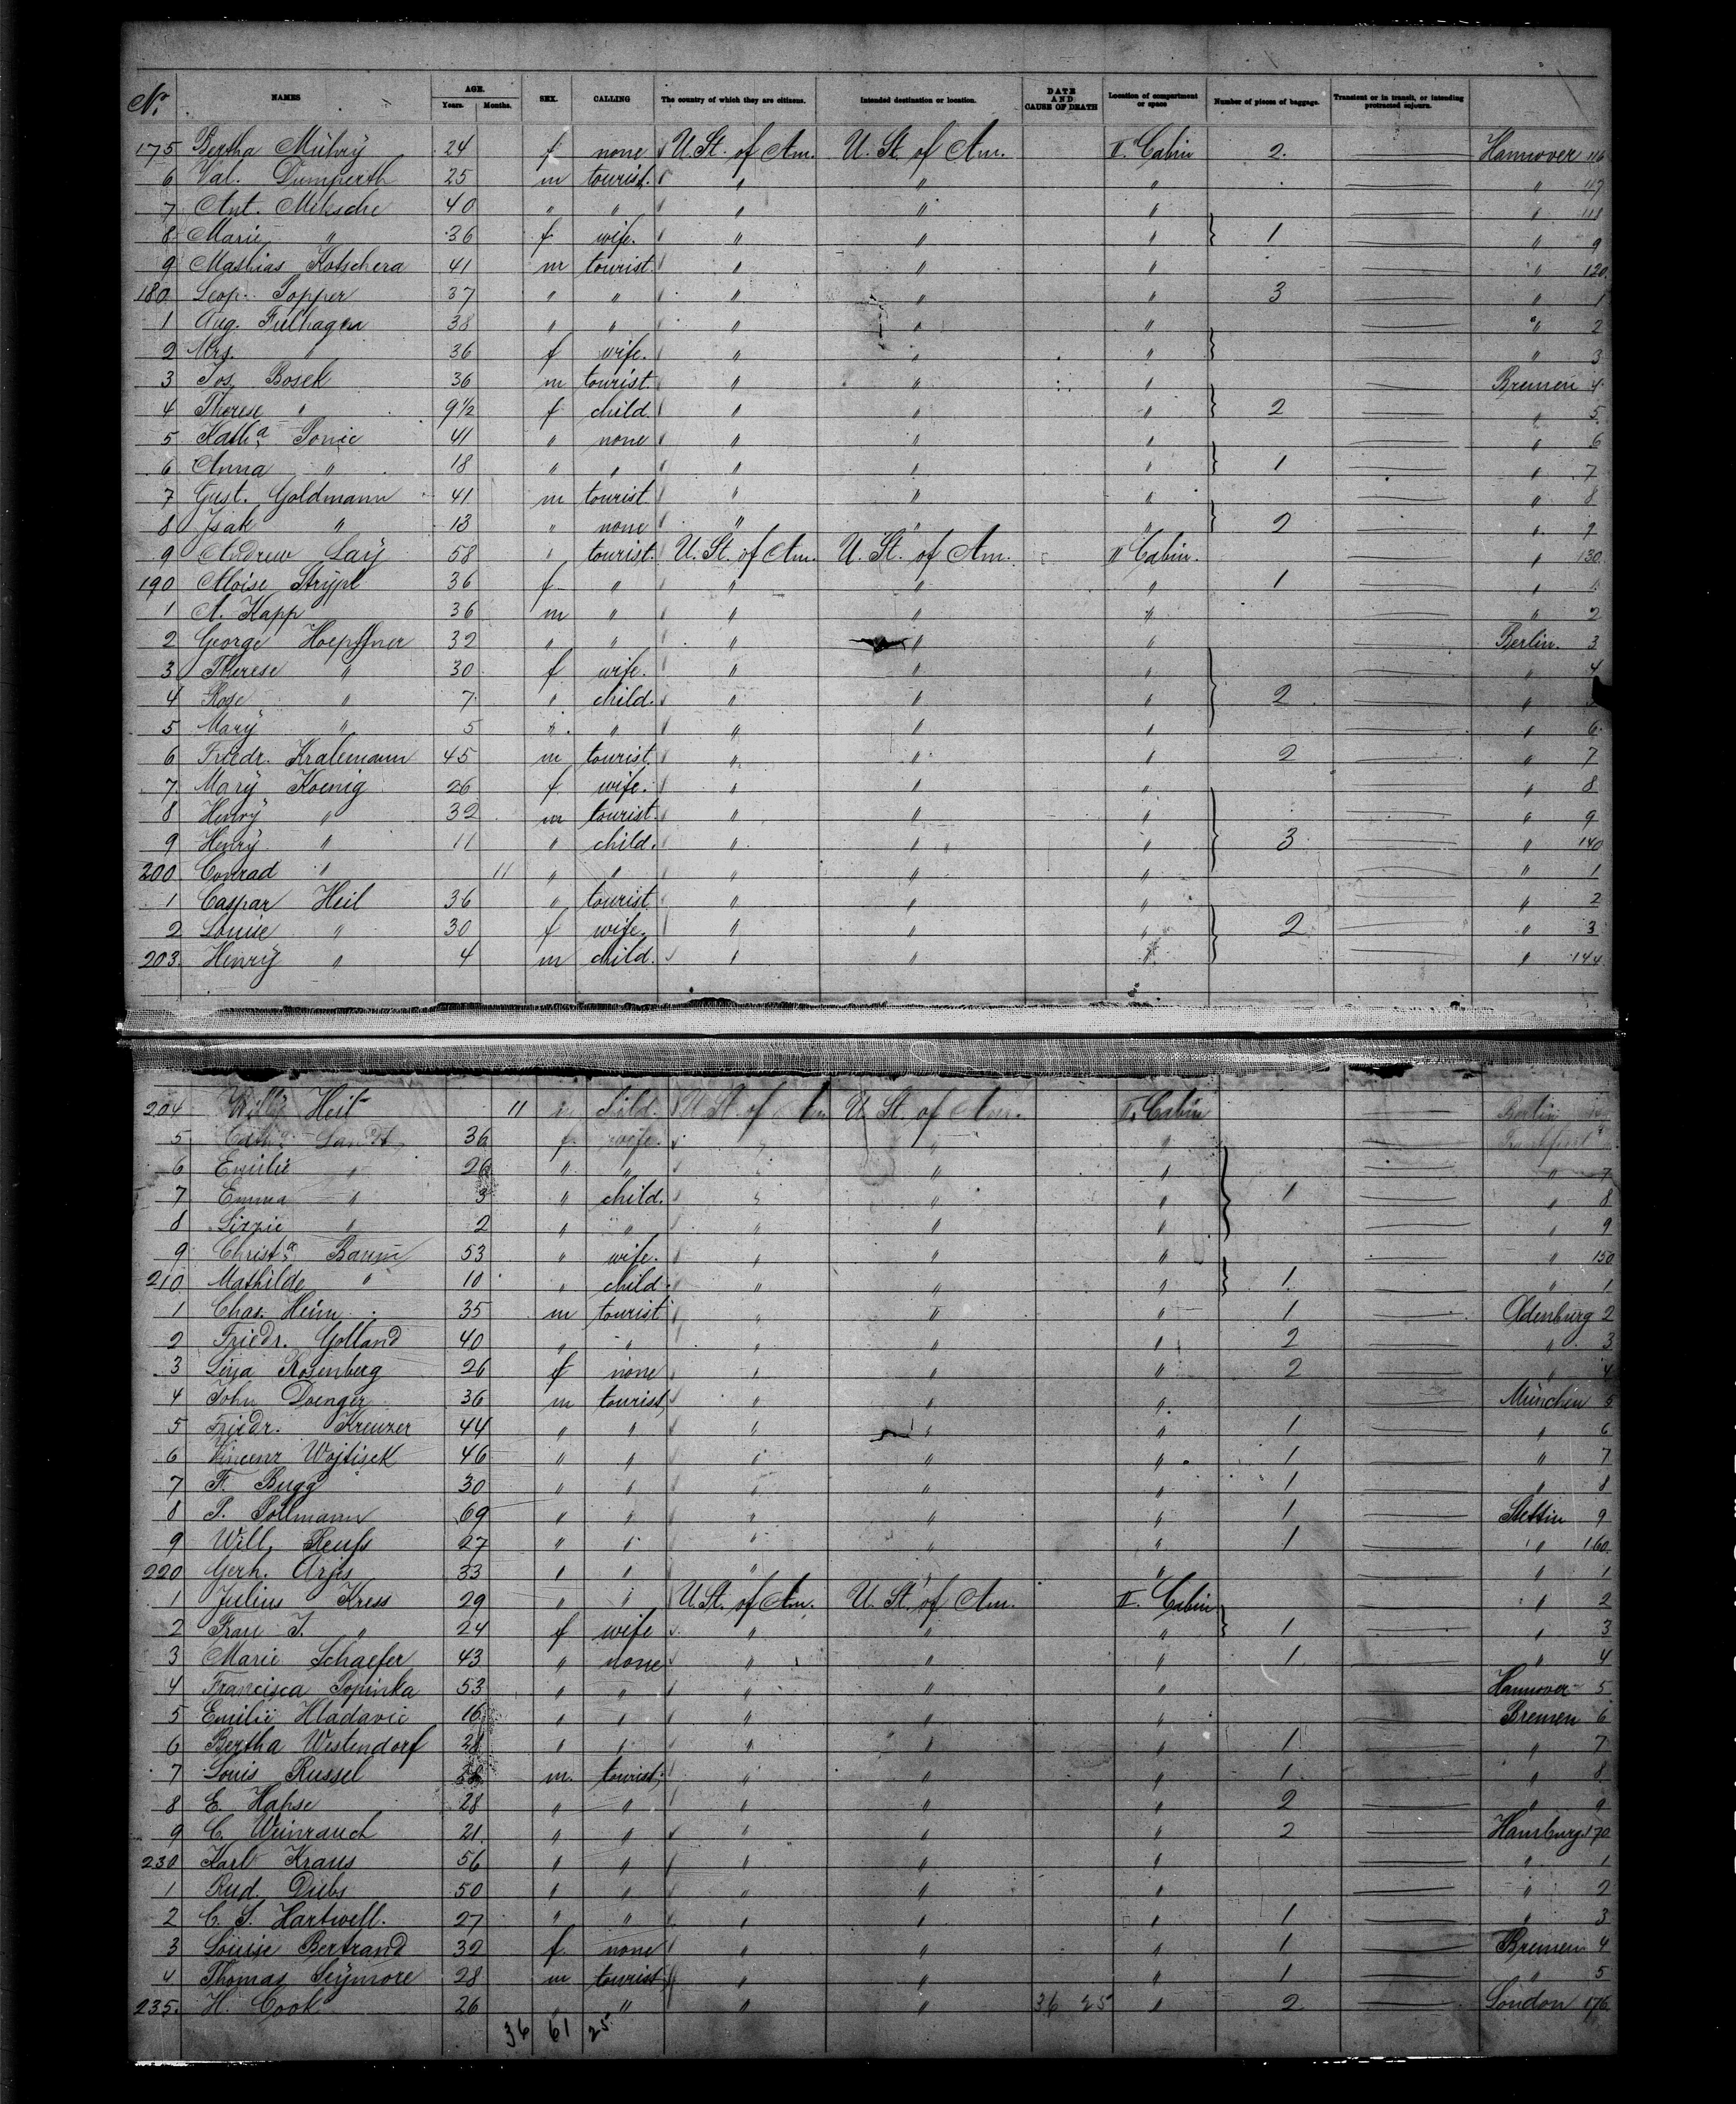 No. NAMES AGE. Years. Months. SEX. CALLING The country of which they are citizens. Intended destination or location. DATE AND CAUSE OF DEATH Location of compartment or space Number of pieces of baggage. Transient or in transit, or intending protracted sojourn.
175 Bertha Mühry 24 f none U. St. of Am. U. St. of Am. II. Cabin 2. Hannover 116
6 Val. Dumperth 25 m tourist. " " " " 117
7 Ant. Miksche 40 " " " " " " 118
8 Marie " 36 f wife. " " " } 1 " 9
9 Mathias Kotschera 41 m tourist. " " " " 120.
180 Leop. Popper 37 " " " " " 3 " 1
1 Aug. Fulhagen 38 " " " " " " 2
2 Mrs. " 36 f wife. " " " } " 3
3 Jos. Bosek 36 m tourist. " " " Bremen 4
4 Therese " 9½ f child. " " " } 2 " 5.
5 Kath.a Ponic 41 " none " " " " 6
6 Anna " 18 " " " " " } 1 " 7
7 Gust. Goldmann 41 m tourist " " " " 8
8 Isak " 13 " none " " " } 2 " 9
9 Andrew Lay 58 " tourist. U. St. of Am. U. St. of Am. II Cabin. " 130
190 Aloise Strypl 36 f " " " " 1 " 1
1 A. Kapp 36 m " " " " " 2
2 George Hoepffner 32 " " " " " Berlin. 3
3 Therese " 30 f wife. " " " " 4
4 Rose " 7 " child. " " " } 2 "
5 Mary " 5 " " " " " " 6
6 Friedr. Kralemann 45 m tourist. " " " 2 " 7
7 Mary Koenig 26 f wife. " " " " 8
8 Henry " 32 m tourist. " " " " 9
9 Henry " 11 " child. " " " } 3 " 140
200 Conrad " 11 " " " " " " 1
1 Caspar Heil 36 " tourist " " " " 2
2 Louise " 30 f wife. " " " } 2 " 3
203. Henry " 4 m child. " " " " 144
204 Willy Heil 11 child. U. St. of Am U. St. of Am. II. Cabin Berlin
5 36 f wife. " " "
6 Emilie " 26 " " " " " " 7
7 Emma " 3 " child. " " " } 1 " 8
8 Lizzie " 2 " " " " " " 9
9 Christ.a Baum 53 " wife. " " " " 150
210 Mathilde " 10 " child. " " " } 1. " 1
1 Chas. Heim 35 m tourist " " " 1 Oldenburg 2
2 Friedr. Golland 40 " " " " " 2 " 3
3 Lina Rosenberg 26 f none " " " 2 " 4
4 John Doenger 36 m tourist, " " " München 5
5 Friedr. Kreuzer 44 " " " " " 1 " 6
6 Vincenz Wojtisek 46 " " " " " 1 " 7
7 F. Bugg 30 " " " " " 1 " 8
8 P. Pollmann 69 " " " " " 1 Stettin 9
9 Will. Reufs 27 " " " " " 1 " 160.
220 Gerh. Arjes 33 " " " " " " 1
1 Julius Kress 29 " " U. St. of Am. U. St. of Am. II. Cabin " 2
2 Frau J. " 24 f wife " " " } 1 " 3
3 Marie Schaefer 43 " none " " " 1 " 4
4 Francisca Popinka 53 " " " " " Hannover 5
5 Emilie Hladavic 16 " " " " " Bremen 6
6 Bertha Westendorf 28 " " " " " 1 " 7
7 Louis Russel m. tourist. " " " 1 " 8
8 E. Hahse 28 " " " " " 2 " 9
9 C. Weinrauch 21. " " " " " 2 Hamburg. 170
230 Karl Kraus 56 " " " " " " 1
1 Rud. Dubs 50 " " " " " " 2
2 C. S. Hartwell. 27 " " " " " 1 " 3
3 Louise Bertrand 32 f none " " " 1 Bremen 4
4 Thomas Seymore 28 m tourist " " " 1 " 5
235. H. Cook 26 " " " " 36 25 " 2 London 176
36 61 25